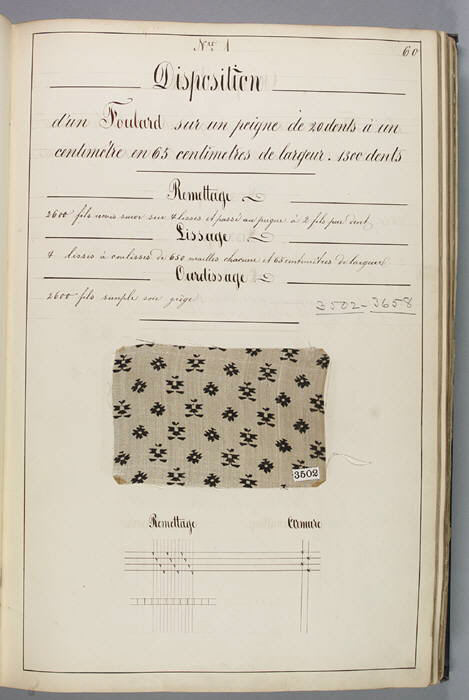 No. 1
60
Disposition
d'un Foulard sur un peigne de 20 dents à un
centimêtre en 65 centimetres de largeur. 1300 dents
Remettage
2600 fils sur 4 lisses et passé au peigne à 2 fils par dent
Lissage
4 lisses à coulisses de 650 mailles chacune et 65 centimetres de largeur
Ourdissage
2600 fils simple soie grège
3502-3658
3502
Remettage
Armure